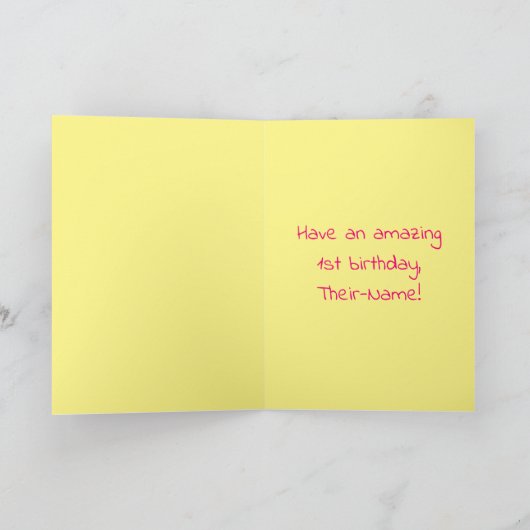 Have an amazing
1st birthday,
Their-Name!